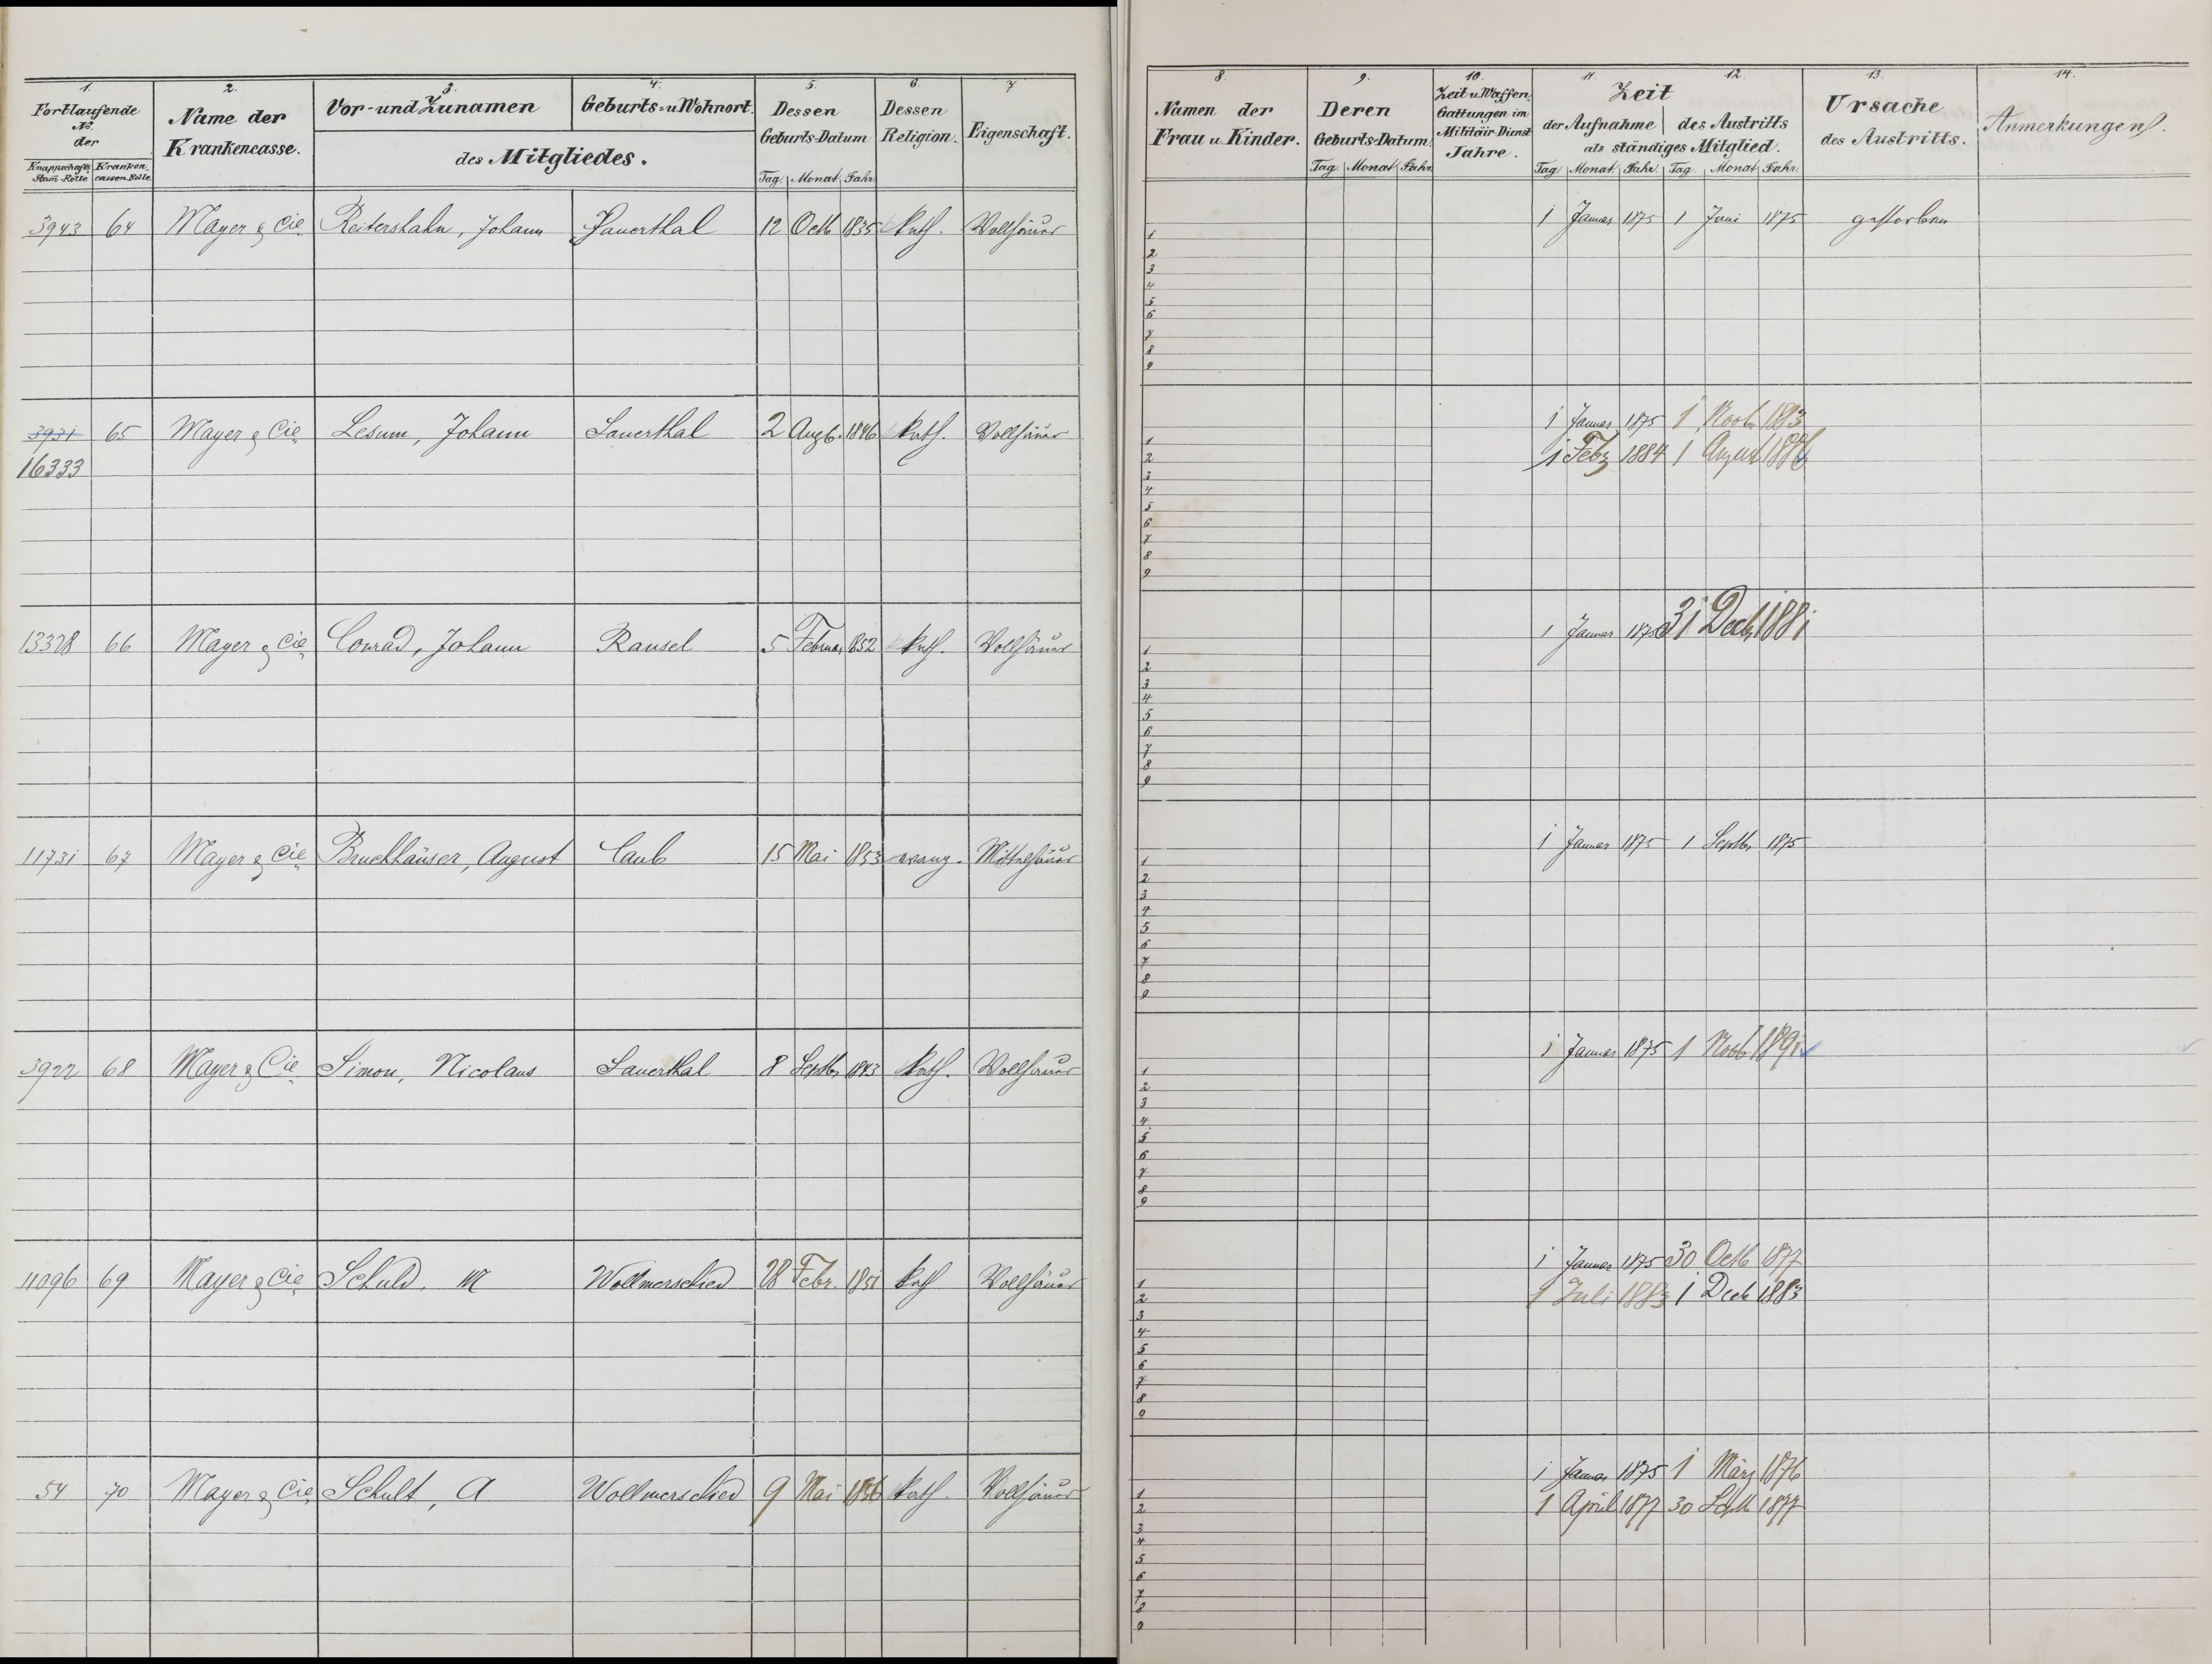 1. 2. 3. 4. 5. 6. 7.
Fortlaufende No. der
Knappschafts Stam-Rolle Kranken cassen-Rolle
Name der Krankencasse.
Vor- und Zunamen Geburts- u Wohnort
des Mitgliedes.
Dessen Geburts-Datum
Tag. Monat Jahr
Dessen Religion.
Eigenschaft.
3943 64 Mayer & Cie Reitershahn, Johann Sauerthal 12 Octb 1835 kath. Vollhäuer
3931 65 Mayer & Cie Lesum, Johann Sauerthal 2 Augt. 1846 kath. Vollhäuer
16333
13328 66 Mayer & Cie Conrad, Johann Ransel 5 Februar 1852 kath. Vollhäuer
11731 67 Mayer & Cie Bruckhäuser, August Caub 15 Mai 1853 evang. Mittelhäuer
3922 68 Mayer & Cie Simon, Nicolaus Sauerthal 8 Septbr 1843 kath. Vollhäuer
11096 69 Mayer & Cie Schuld, M Wollmerschied 28 Febr. 1851 kath Vollhäuer
54 70 Mayer & Cie Schult, A Wollmerschied 9 Mai 1856 kath. Vollhäuer
8. 9. 10. 11. 12. 13. 14.
Namen der Frau u. Kinder.
Deren Geburts-Datum.
Tag. Monat Jahr
Zeit u Waffen Gattungen im Militair Dienst Jahre.
Zeit
der Aufnahme des Austritts
als ständiges Mitglied.
Tag Monat. Jahr. Tag. Monat Jahr.
Ursache des Austritts.
Anmerkungen.
1 Januar 1875 1 Juni 1875 gestorben
1
2
3
4
5
6
7
8
9
1 Januar 1875 1 Novb 1883
1
1 Febr 1884 1 August 1886
2
3
4
5
6
7
8
9
1 Januar 1875 31 Decb 1881
1
2
3
4
5
6
7
8
9
1 Januar 1875 1 Septbr 1875
1
2
3
4
5
6
7
8
9
1 Januar 1875 1 Novb 1891
1
2
3
4
5
6
7
8
9
1 Januar 1875 30 Octb 1877
1
1 Juli 1883 1 Decb 1883
2
3
4
5
6
7
8
9
1 Januar 1875 1 März 1876
1
1 April 1877 30 Septb 1877
2
3
4
5
6
7
8
9